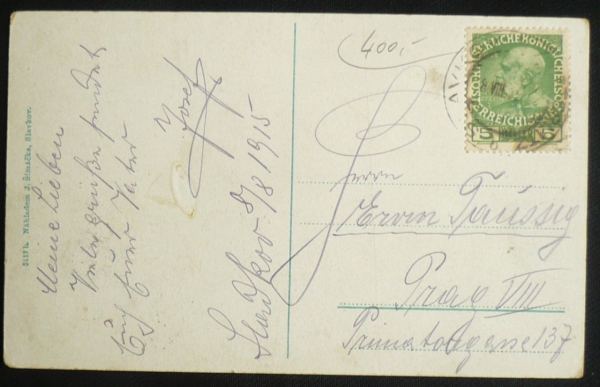 Meine Lieben
Viele Grüße sendet
Euch Euer Vater
Josef
Slavkov 8/8 1915
Nákladem J. Šimáčka, Slavkov.
400,-
KAISERLICHE KÖNIGLICHE ÖSTERREICHISCHE
5 5
Herrn
Erwin Taussig
Prag VIII
Primatorgasse 137